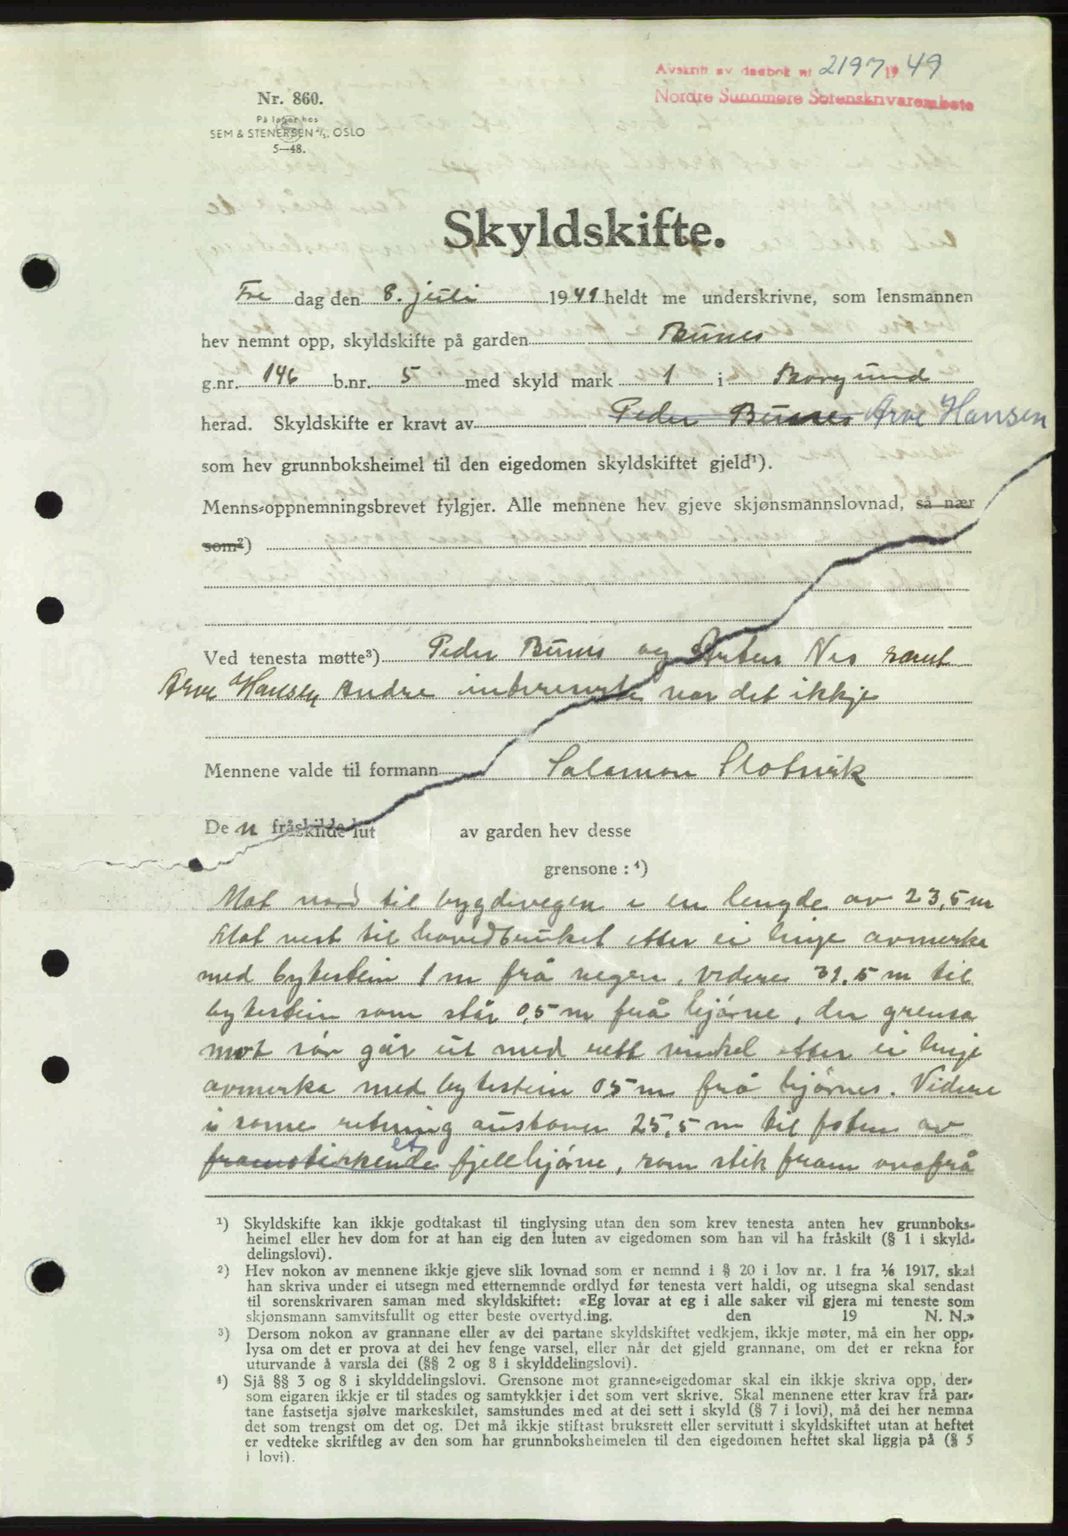 Avskrift av dagbok nr 2197 19 49
Nordre Sunnmøre Sorenskrivarembete
Nr. 860.
På lager hos
SEM & STENERSEN A/S, OSLO
5—48.
Skyldskifte.
Fre dag den 8. juli 1949 heldt me underskrivne, som lensmannen
hev nemnt opp, skyldskifte på garden Bunes
g.nr. 146 b.nr. 5 med skyld mark 1 i Borgund
herad. Skyldskifte er kravt av Peder Bunes Arve Hansen
som hev grunnboksheimel til den eigedomen skyldskiftet gjeld¹).
Menns-oppnemningsbrevet fylgjer. Alle mennene hev gjeve skjønsmannslovnad, så nær
som²)
Ved tenesta møtte³) Peder Bunes og Nes samt
Arve Hansen Andre interesserte var det ikkje
Mennene valde til formann Salamon Slotsvik
De n fråskilde lut av garden hev desse
grensone : ⁴)
Mot nord til bygdevegen i en lengde av 23,5 m
Mot vest til hovedbruket etter ei linje avmerka
med bytestein 1 m frå vegen, videre 31.5 m til
bytestein som står 0,5 m frå hjørne, der grensa
mot sør går ut med rett vinkel etter ei linje
avmerka med bytestein 05 m frå hjørnes. Videre
i same retning austover 25,5 m til foten av
framstikkende et fjellhjørne, som stik fram ovafrå
¹) Skyldskifte kan ikkje godtakast til tinglysing utan den som krev tenesta anten hev grunnboks-
heimel eller hev dom for at han eig den luten av eigedomen som han vil ha fråskilt (§ 1 i skyld-
delingslovi).
²) Hev nokon av mennene ikkje gjeve slik lovnad som er nemnd i § 20 i lov nr. 1 fra 1/6 1917, skal
han skriva under ei utsegn med etternemnde ordlyd før tenesta vert haldi, og utsegna skal sendast
til sorenskrivaren saman med skyldskiftet: «Eg lovar at eg i alle saker vil gjera mi teneste som
skjønsmann samvitsfullt og etter beste overtyd.ing. den 19 N. N.»
³) Dersom nokon av grannane eller av dei partane skyldskiftet vedkjem, ikkje møter, må ein her opp-
lysa om det er prova at dei hev fenge varsel, eller når det gjeld grannane, om det er rekna for
uturvande å varsla dei (§§ 2 og 8 i skylddelingslovi).
⁴) Sjå §§ 3 og 8 i skylddelingslovi. Grensone mot granne-eigedomar skal ein ikkje skriva opp, der-
som eigaren ikkje er til stades og samtykkjer i det som vert skrive. Skal mennene etter krav frå par-
tane fastsetja sjølve markeskilet, samstundes med at dei sett i skyld (§ 7 i lovi), må dei her nemna
det som trengst om det og. Det må ikkje stiftast bruksrett eller servitutt i skyldskiftet utan at heftet
er vedteke skriftleg av den som har grunnboksheimelen til den eigedomen heftet skal liggja på (§ 5
i lovi).